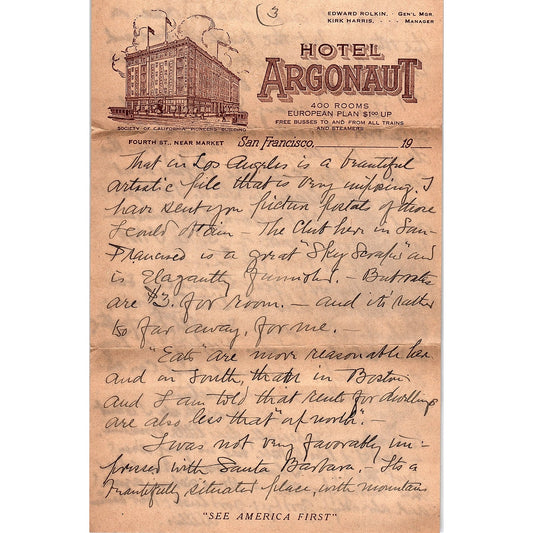 (3
EDWARD ROLKIN, - GEN'L MGR.
KIRK HARRIS, - - - MANAGER
HOTEL
ARGONAUT
400 ROOMS
EUROPEAN PLAN $1.00 UP
FREE BUSSES TO AND FROM ALL TRAINS
AND STEAMERS
SOCIETY OF CALIFORNIA PIONEERS' BUILDING
FOURTH ST., NEAR MARKET San Francisco, 19
That in Los Angeles is a beautiful
artistic pile that is very imposing. I
have sent you picture postals of those
I could obtain - The Club here in San-
Francisco is a great "Sky Scraper" and
is Elegantly furnished. - But rates
are $3. for room. - and it's rather
too far away, for me. -
"Eats" are more reasonable here
and in South, than in Boston
and I am told that rents for dwellings
are also less that "up north". -
I was not very favorably im-
pressed with Santa Barbara. - Its a
beautifully situated place, with mountains
"SEE AMERICA FIRST"